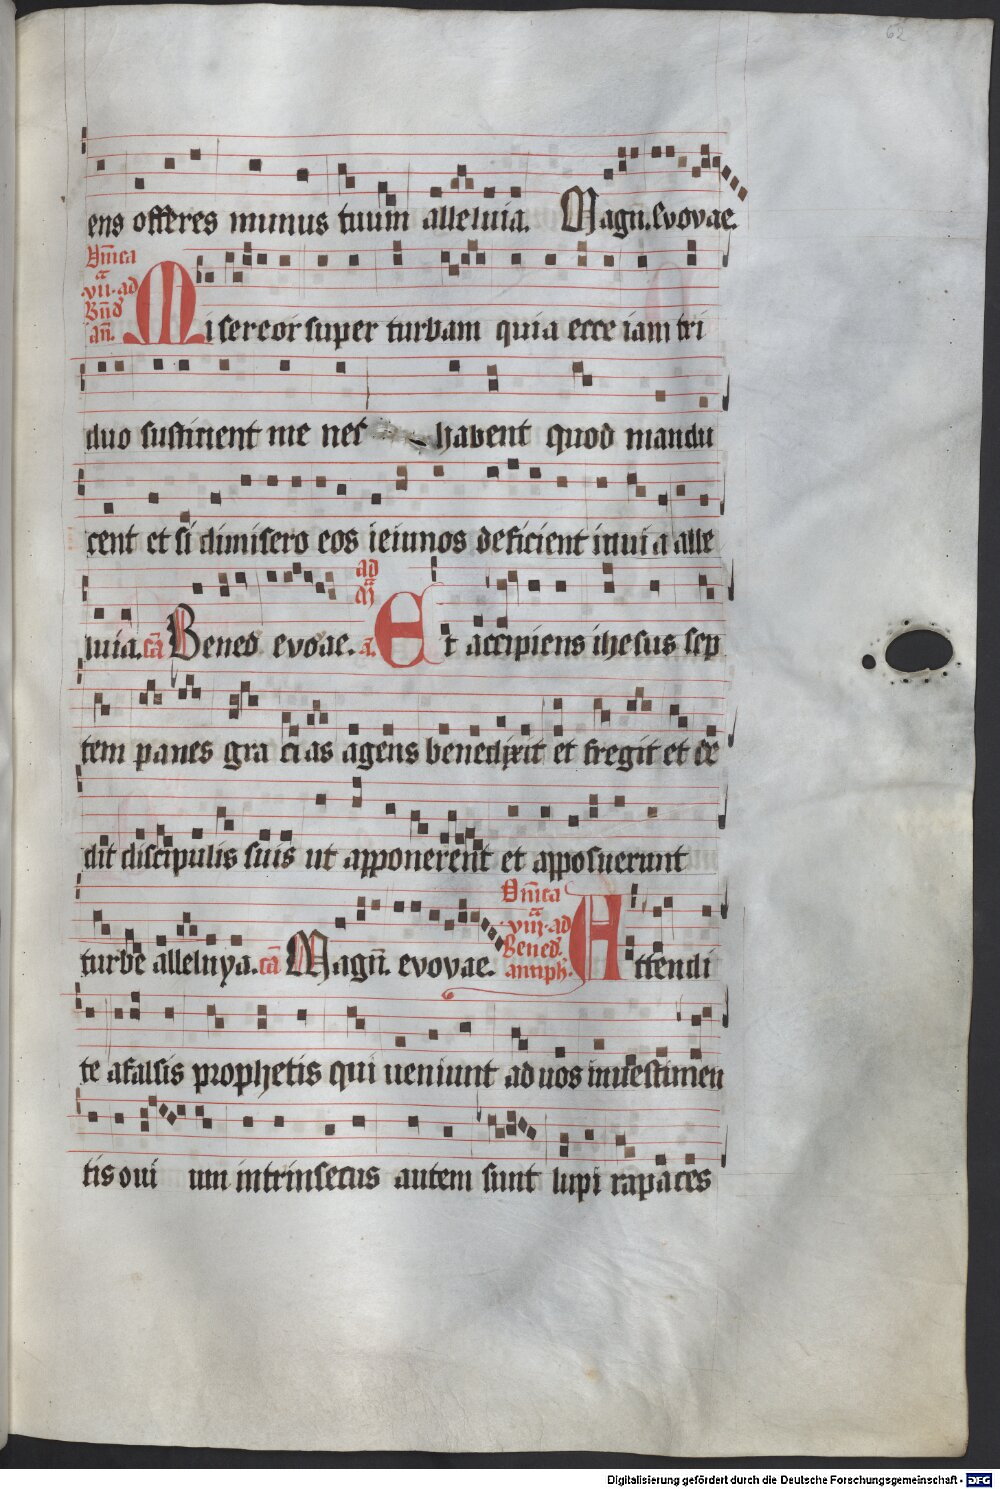 62
ens offeres munus tuum alleluia. Magn̄. Evovae.
Dn̄ica
a
.vii. ad
Bn̄d
an̄.
Misereor super turbam quia ecce iam tri
duo sustinent me nec habent quod mandu
cent et si dimisero eos ieiunos deficient in via alle
luia. cā Bened. evoae. ad
a
M
a. Et accipiens ihesus sep
tem panes gracias agens benedixit et fregit et de
dit discipulis suis ut apponerent et apposuerunt
turbe alleluya. cā Magn̄. evovae. Dn̄ica
a
.viij. ad
Bened.
antiph. Attendi
te a falsis prophetis qui ueniunt ad uos in uestimen
tis oui um intrinsecus autem sunt lupi rapaces
Digitalisierung gefördert durch die Deutsche Forschungsgemeinschaft - DFG